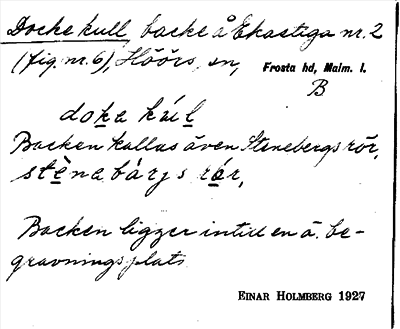 Dockekull, backe å Ekastiga nr. 2
(fig. nr. 6), Höörs sn, Frosta hd, Malm. l.
B
dok̲a kúl
Backen kallas även Stenebergs rör,
stènabárjs rǿr,
Backen ligger intill en ä. be-
gravningsplats
EINAR HOLMBERG 1927